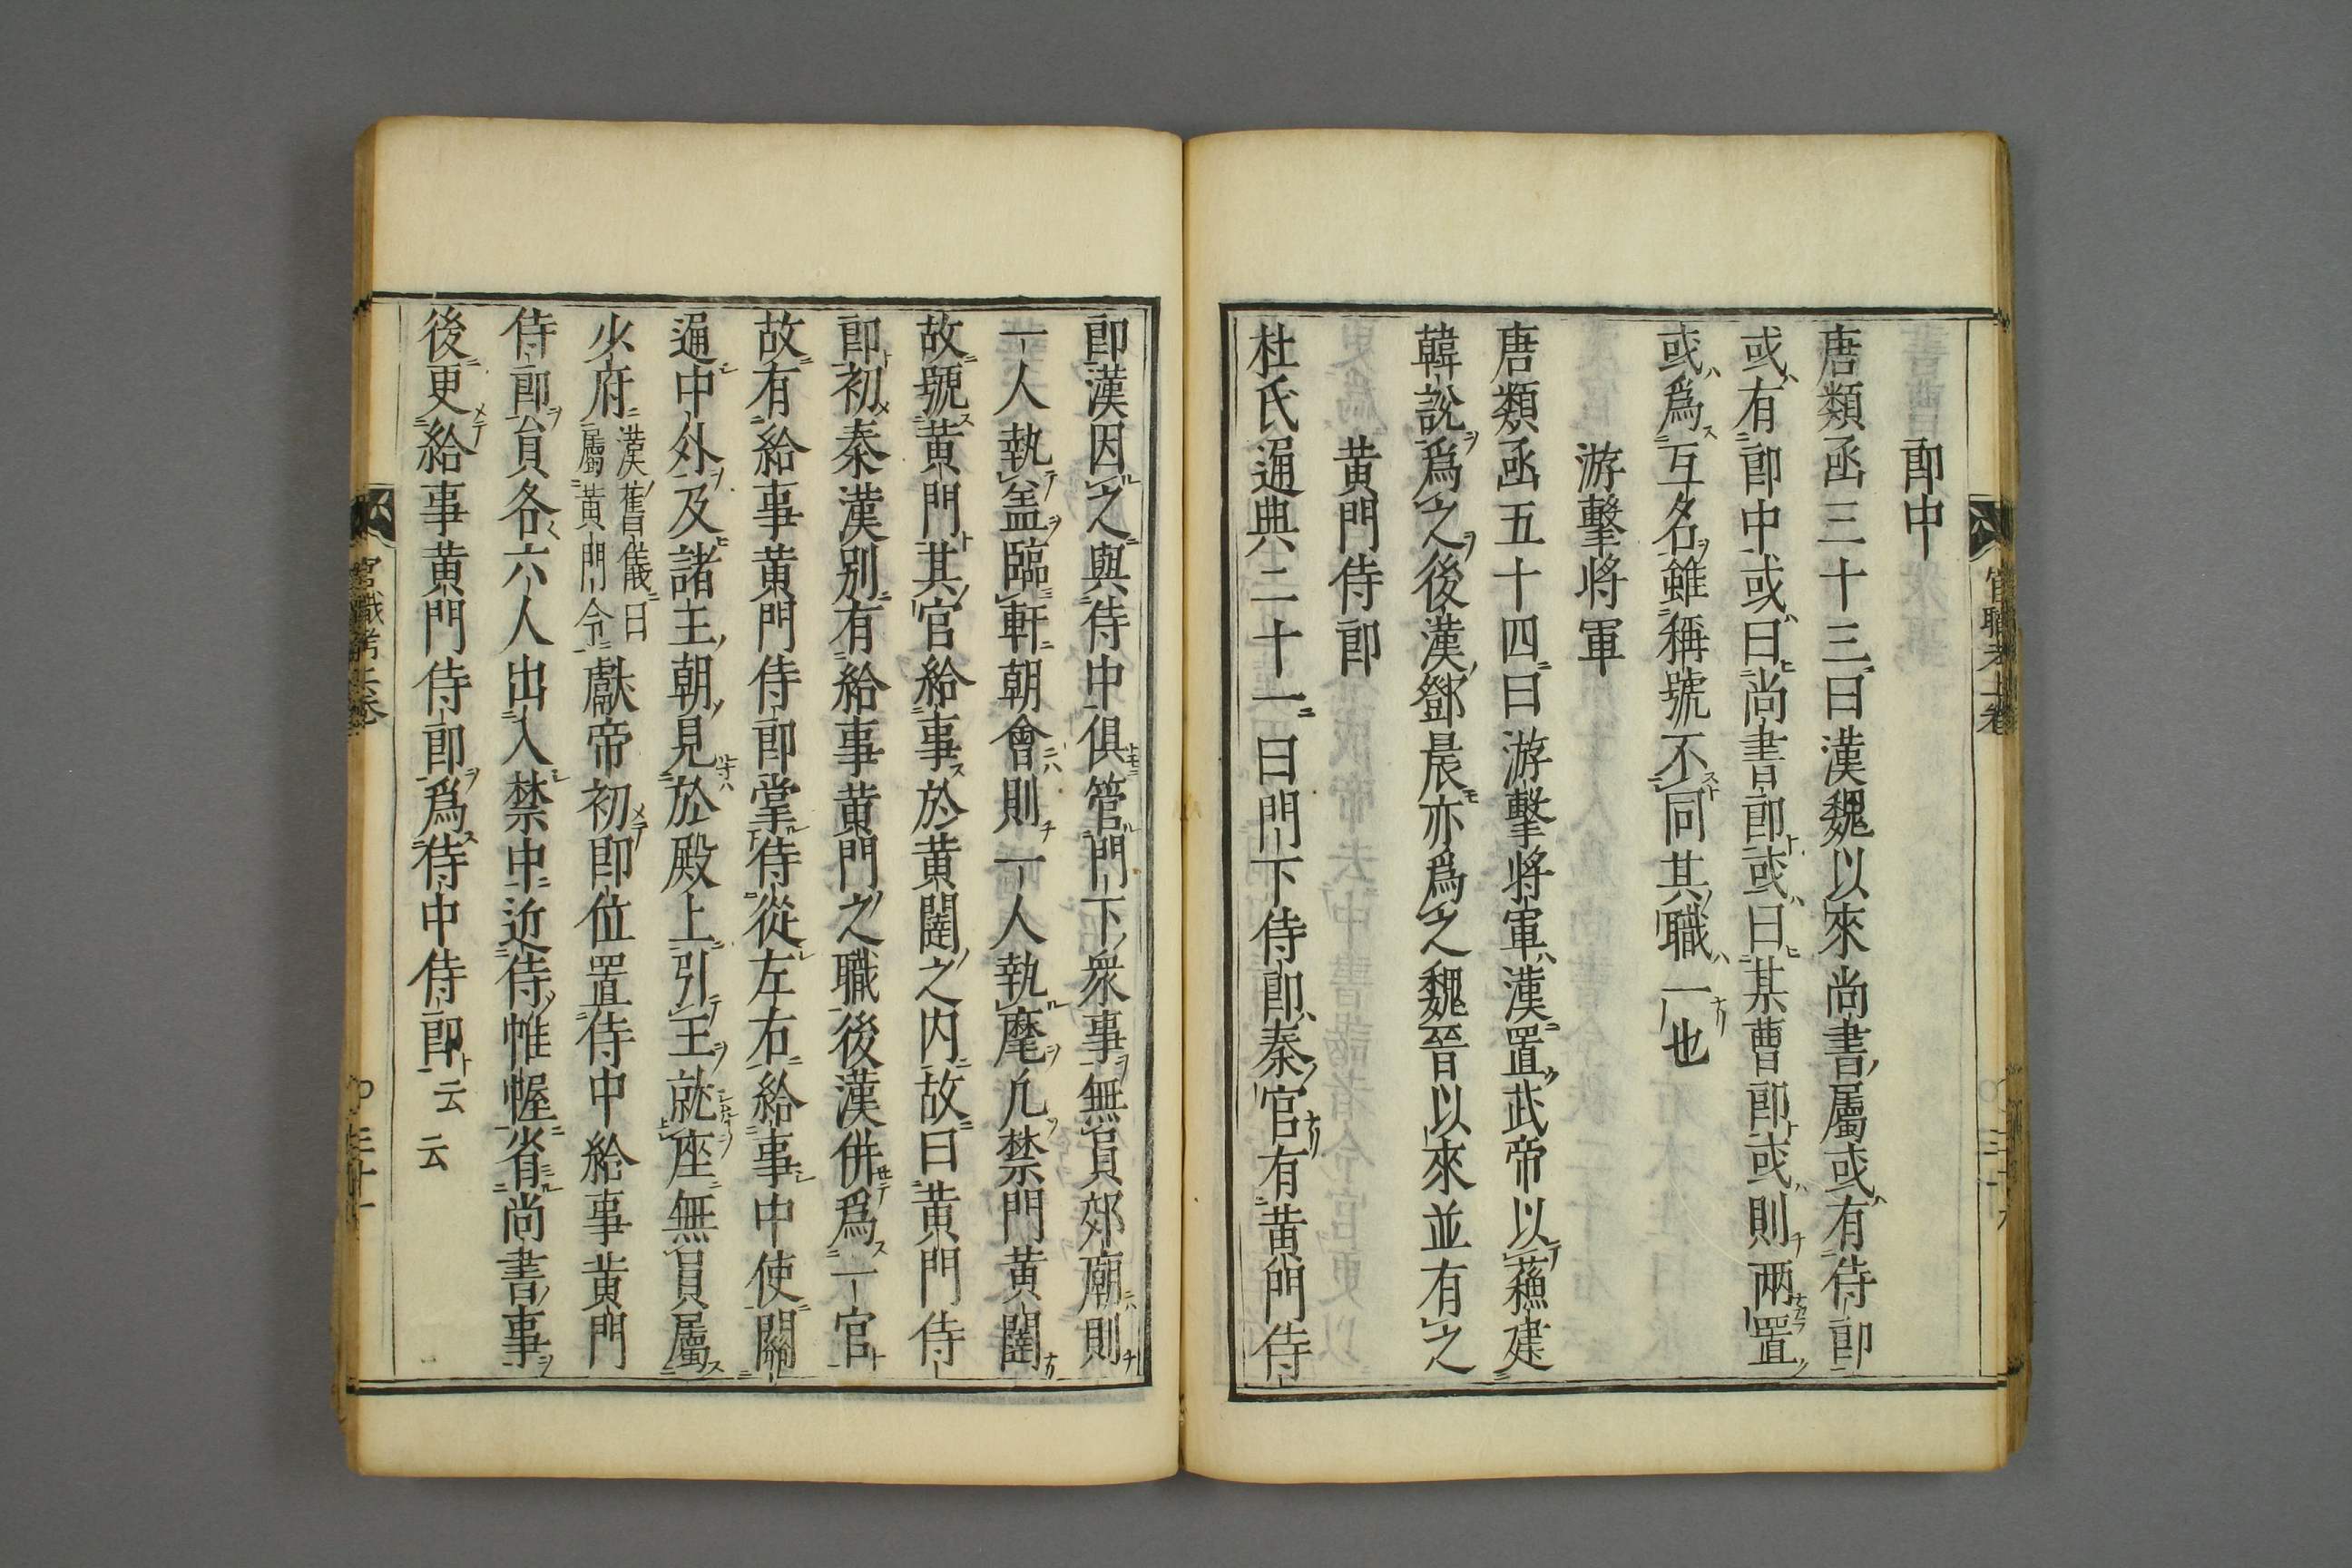 郎中
唐類函三十三曰漢魏以來尚書屬或有侍郎
或有郎中或曰尚書郎或曰某曹郎或則兩置
或爲互名雖稱號不同其職一也
游擊將軍
唐類函五十四曰游擊將軍漢置武帝以蘓建
韓說爲之後漢鄧晨亦爲之魏晉以來並有之
黃門侍郎
杜氏通典二十一曰門下侍郎秦官有黃門侍
郎漢因之與侍中俱管門下衆事無員郊廟則
一人執盖臨軒朝會則一人執麾凡禁門黃闥
故號黃門其官給事於黃闥之內故曰黃門侍
郎初秦漢別有給事黃門之職後漢併爲一官
故有給事黃門侍郎掌侍從左右給事中使關
通中外及諸王朝見於殿上引王就座無員屬
少府漢舊儀曰屬黃門令獻帝初即位置侍中給事黃門
侍郎員各六人出入禁中近侍帷幄省尚書事
後更給事黃門侍郎爲侍中侍郎云云